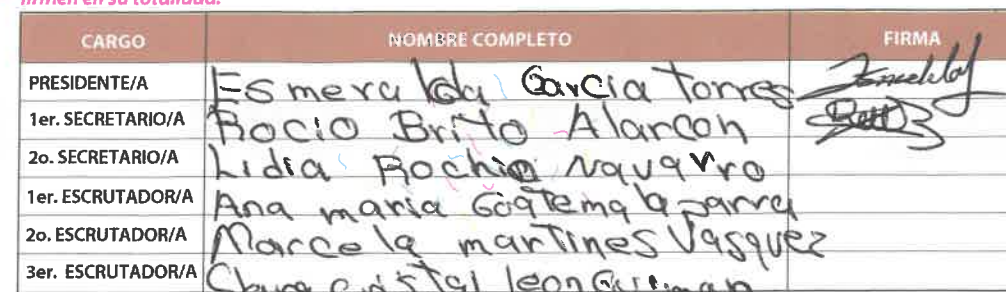 firmen en su totalidad.
CARGO NOMBRE COMPLETO FIRMA
PRESIDENTE/A Esmeralda Garcia Torres
1er. SECRETARIO/A Rocio Brito Alarcon
2o. SECRETARIO/A Lidia Rochio Navarro
1er. ESCRUTADOR/A Ana maria Goatemala parra
2o. ESCRUTADOR/A Marcela martines Vasquez
3er. ESCRUTADOR/A cristal leon